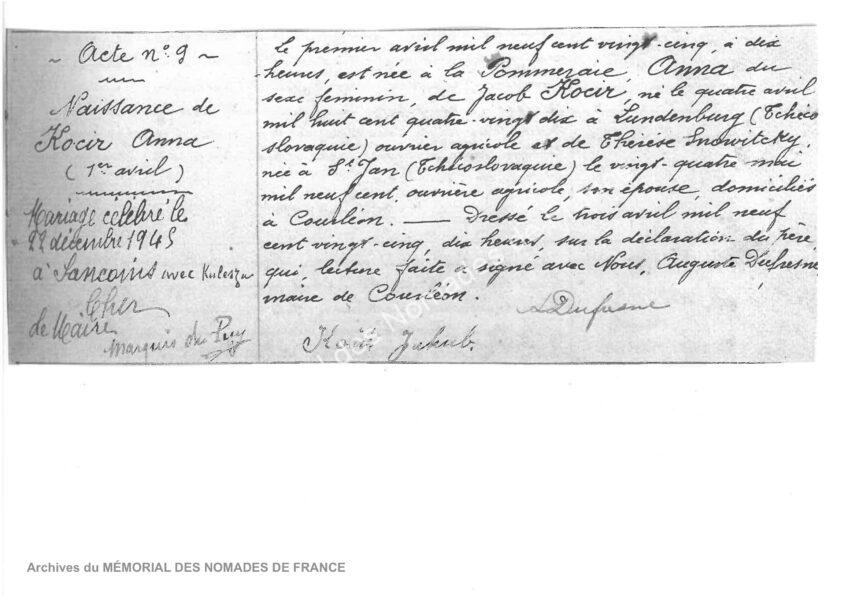 ~ Acte n° 9 ~
Naissance de
Kocir Anna
(1er avril)
Mariage célébré le
22 décembre 1945
à Sancoins avec Kulesza
Cher
Le Maire
Marquis du Puy
Le premier avril mil neuf cent vingt-cinq, à dix
heures, est née à la Pommeraie, Anna du
sexe féminin, de Jacob Kocir, né le quatre avril
mil huit cent quatre-vingt dix à Lundenburg (Tchéco
slovaquie) ouvrier agricole et de Thérèse Snowitcky,
née à St Jan (Tchécoslovaquie) le vingt-quatre mai
mil neuf cent, ouvrière agricole, son épouse, domiciliés
à Courléon. — Dressé le trois avril mil neuf
cent vingt-cinq, dix heures, sur la déclaration du père,
qui, lecture faite a signé avec Nous, Auguste Dufresne,
maire de Courléon.
ADufresne
Jakub.
Archives du MÉMORIAL DES NOMADES DE FRANCE